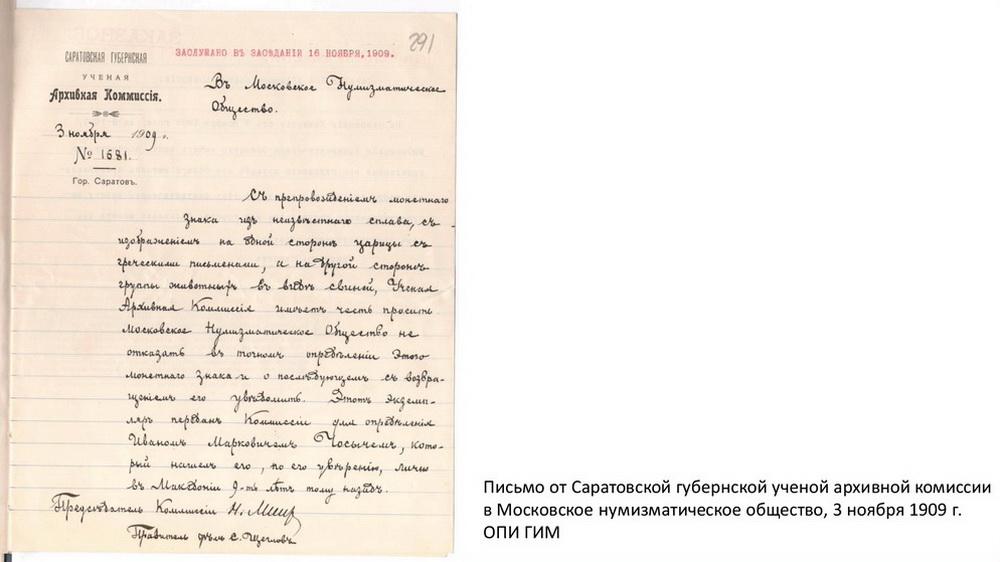 291
САРАТОВСКАЯ ГУБЕРНСКАЯ
УЧЕНАЯ
Архивная Коммиссія.
ЗАСЛУШАНО ВЪ ЗАСѢДАНІИ 16 НОЯБРЯ, 1909.
Въ Московское Нумизматическое
Общество.
3 ноября 1909 г.
№ 1681.
Гор. Саратовъ.
Съ препровожденіемъ монетнаго
знака изъ неизвѣстнаго сплава, съ
изображеніемъ на одной сторонѣ царицы съ
греческими письменами, а на другой сторонѣ
группы животныхъ въ видѣ свиней, Ученая
Архивная Коммиссія имѣетъ честь просить
Московское Нумизматическое Общество не
отказать въ точномъ опредѣленіи этого
монетнаго знака и о послѣдующемъ съ возвра-
щеніемъ его увѣдомить. Этотъ экзем-
пляръ переданъ Коммиссіи для опредѣленія
Иваномъ Марковичемъ Чосычемъ, кото-
рый нашелъ его, по его увѣренію, лично
въ Македоніи 9-ть лѣтъ тому назадъ.
Предсѣдатель Коммиссіи Н. Минх
Правитель дѣлъ С. Щегловъ
Письмо от Саратовской губернской ученой архивной комиссии
в Московское нумизматическое общество, 3 ноября 1909 г.
ОПИ ГИМ